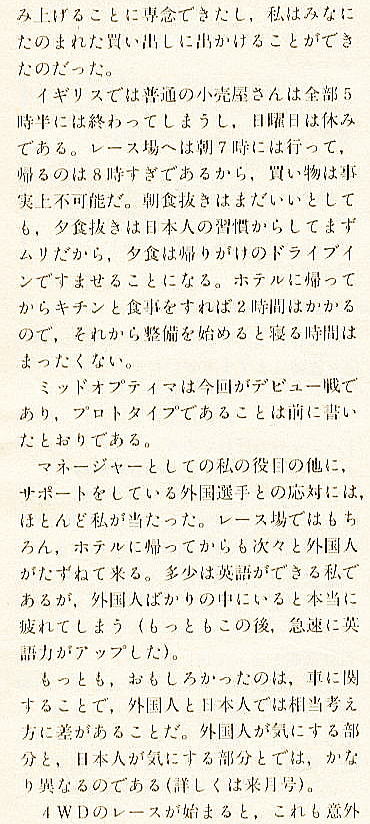 み上げることに専念できたし，私はみなに
たのまれた買い出しに出かけることができ
たのだった。
イギリスでは普通の小売屋さんは全部5
時半には終わってしまうし，日曜日は休み
である。レース場へは朝7時には行って，
帰るのは8時すぎであるから，買い物は事
実上不可能だ。朝食抜きはまだいいとして
も，夕食抜きは日本人の習慣からしてまず
ムリだから，夕食は帰りがけのドライブイ
ンですませることになる。ホテルに帰って
からキチンと食事をすれば2時間はかかる
ので，それから整備を始めると寝る時間は
まったくない。
ミッドオプティマは今回がデビュー戦で
あり，プロトタイプであることは前に書い
たとおりである。
マネージャーとしての私の役目の他に，
サポートをしている外国選手との応対には，
ほとんど私が当たった。レース場ではもち
ろん，ホテルに帰ってからも次々と外国人
がたずねて来る。多少は英語ができる私で
あるが，外国人ばかりの中にいると本当に
疲れてしまう（もっともこの後，急速に英
語力がアップした）。
もっとも，おもしろかったのは，車に関
することで，外国人と日本人では相当考え
方に差があることだ。外国人が気にする部
分と，日本人が気にする部分とでは，かな
り異なるのである（詳しくは来月号）。
4WDのレースが始まると，これも意外